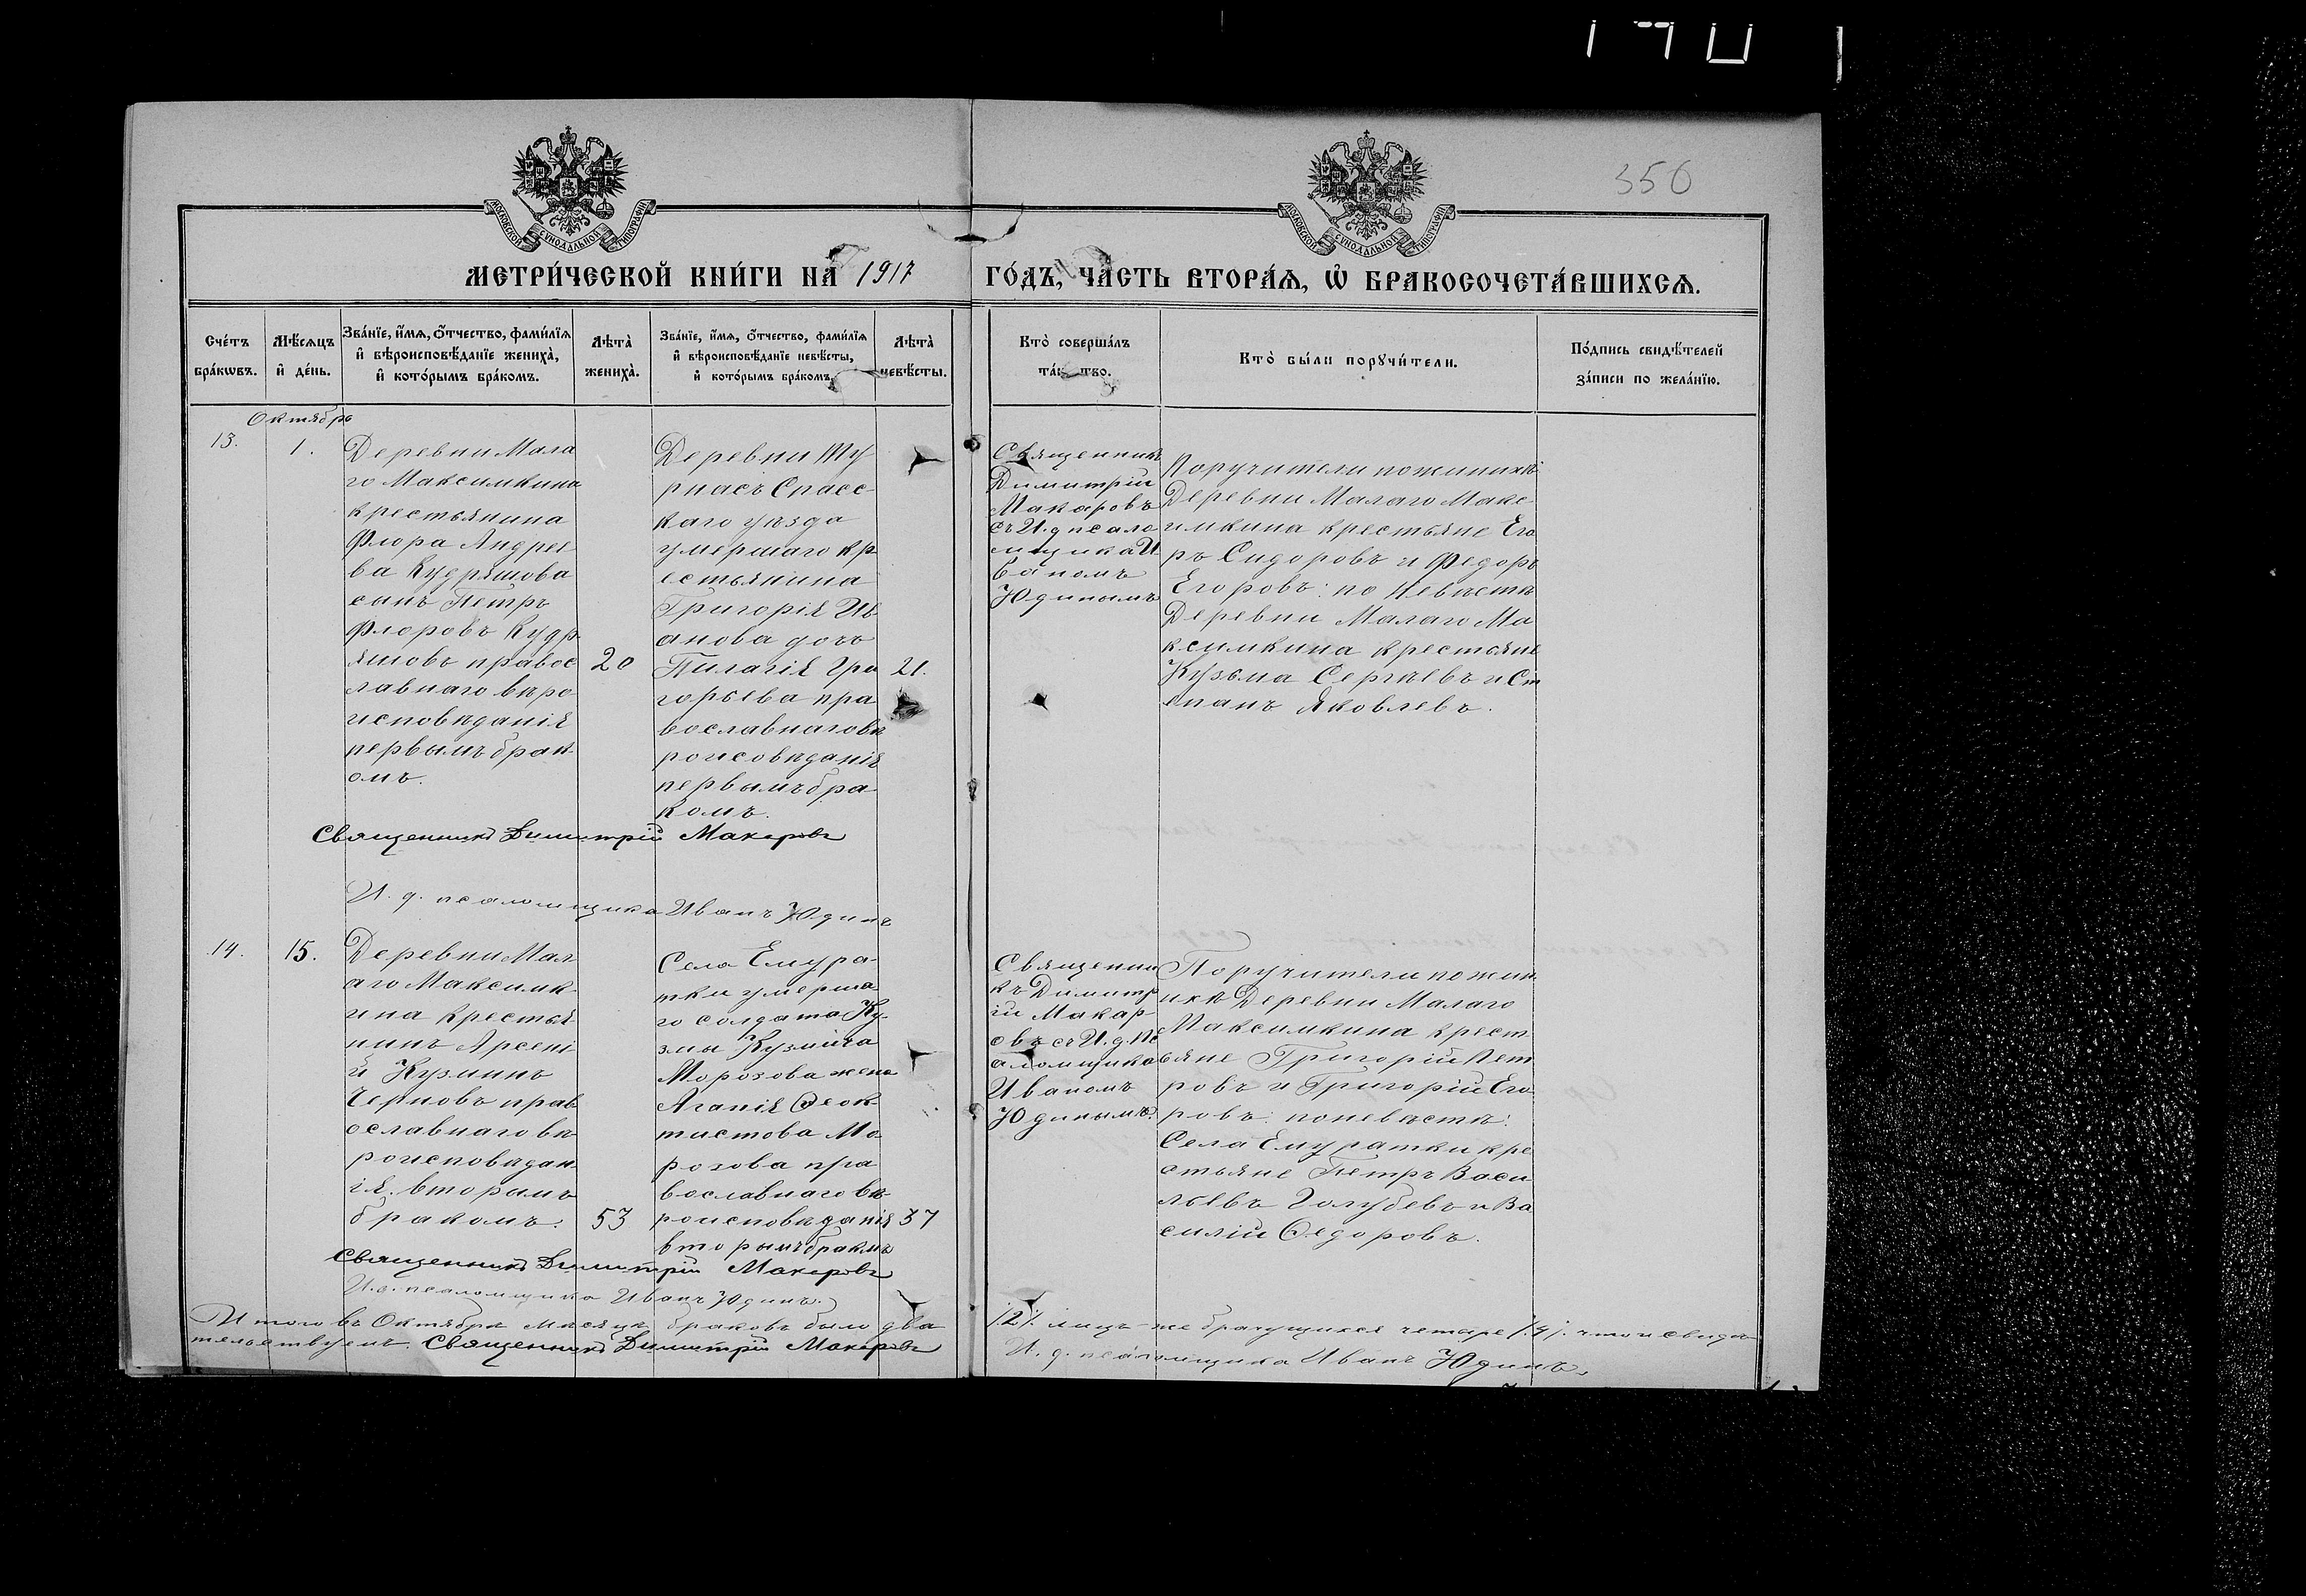 350
МОСКОВСКОЙ СУНОДАЛЬНОЙ ТИПОГРАФІИ
МОСКОВСКОЙ СУНОДАЛЬНОЙ ТИПОГРАФІИ
МЕТРИ́ЧЕСКОЙ КНИ́ГИ НА 1917 ГО́ДЪ, ЧА́СТЬ ВТОРА́Ѧ, Ѡ҆ БРАКОСОЧЕТА́ВШИХСѦ.
Сче́тъ
бра́кѡвъ.
Мѣ́сѧцъ
и҆ де́нь.
Зва́нїе, и҆́мѧ, ѻ҆́тчество, фами́лїѧ
и҆ вѣроисповѣ́данїе жениха̀,
и҆ кото́рымъ бра́комъ.
Лѣта̀
жениха̀.
Зва́нїе, и҆́мѧ, ѻ҆́тчество, фами́лїѧ
и҆ вѣроисповѣ́данїе невѣ́сты,
и҆ кото́рымъ бра́комъ.
Лѣта̀
невѣ́сты.
Кто̀ соверша́лъ
та́и тво.
Кто̀ бы́ли порꙋчи́тели.
По́дпись свидѣ́телей
за́писи по жела́нїю.
Октябрь
13.
1.
Деревни Мала
го Максимкина
крестьянина
Флора Андрее
ва Кудряшова
сынъ Петръ
Флоровъ Кудр
яшовъ правос
лавнаго веро
исповѣданія
первымъ брак
омъ.
20
Деревни Ту
рнасъ Спасс-
каго уезда
умершаго кр
естьянина
Григорія Ив
анова дочь
Пилагія Гри
горьева пра
вославнаго вѣ
роисовѣданія
первымъ бра
комъ.
21.
Священникъ
Димитрій
Макаровъ
съ И.д псало
мщика И
ваномъ
Юдинымъ
Поручители по жинихѣ
Деревни Малаго Макс
имкина крестьяне Его
ръ Сидоровъ и Федоръ
Егоровъ: по невѣстѣ
Деревни Малаго Ма
ксимкина крестьяне
Кузьма Сергѣевъ и Ст
епанъ Яковлевъ.
Священникъ Димитрій Макаровъ
И. д. псаломщика Иванъ Юдинъ
14.
15.
Деревни Мал
аго Максимк
ина крестья
нинъ Арсені
й Кузминъ
Черновъ прав
ославнаго вѣ
роисповѣдан
ія. вторымъ
бракомъ.
53
Села Емура-
тки умерша
го солдата Ку-
змы Кузмича
Морозова жена
Агапія Ѳеок-
тистова Мо-
розова пра
вославнаго вѣ-
роисповѣданія
вторымъ бракмъ
37
Священни
къ Димитр
ій Макар
овъ съ И. д. Пс
аломщика
Иваномъ
Юдинымъ.
Поручители по жин
ихѣ Деревни Малаго
Максимкина крест
ьяне Григорій Пет
ровъ и Григорій Его
ровъ: по невѣстѣ:
Села Емуратки кре
стьяне Петръ Васи
льевъ Голубевъ и Ва
силій Ѳедоровъ.
Священникъ Димитрій Макаровъ
И. д. псаломщика Иванъ Юдинъ.
Итого въ Октября месяцѣ браковъ было два /2/. лицъ-же брачущихся четыре /4/. что и свидѣ-
тельствуемъ. Священникъ Димитрій Макаровъ
И. д. псаломщика Иванъ Юдинъ.